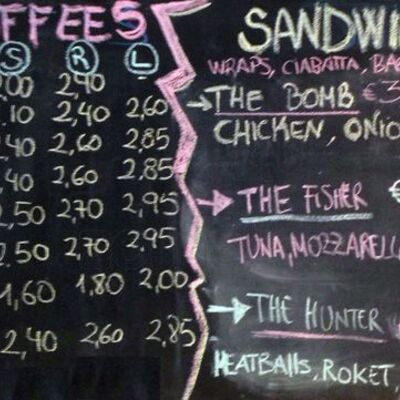 FFEES
S R L
.00 2,40
.10 2,40 2,60
,40 2,60 2,85
,40 2,60 2,85
2,50 2,70 2,95
2.50 2,70 2,95
1,60 1,80 2,00
2,40 2,60 2,85
SANDWI
WRAPS, CIABATTA, BAG
THE BOMB €3
CHICKEN, ONIO
THE FISHER €
TUNA, MOZZARELLA
THE HUNTER
MEATBALLS, ROKET,